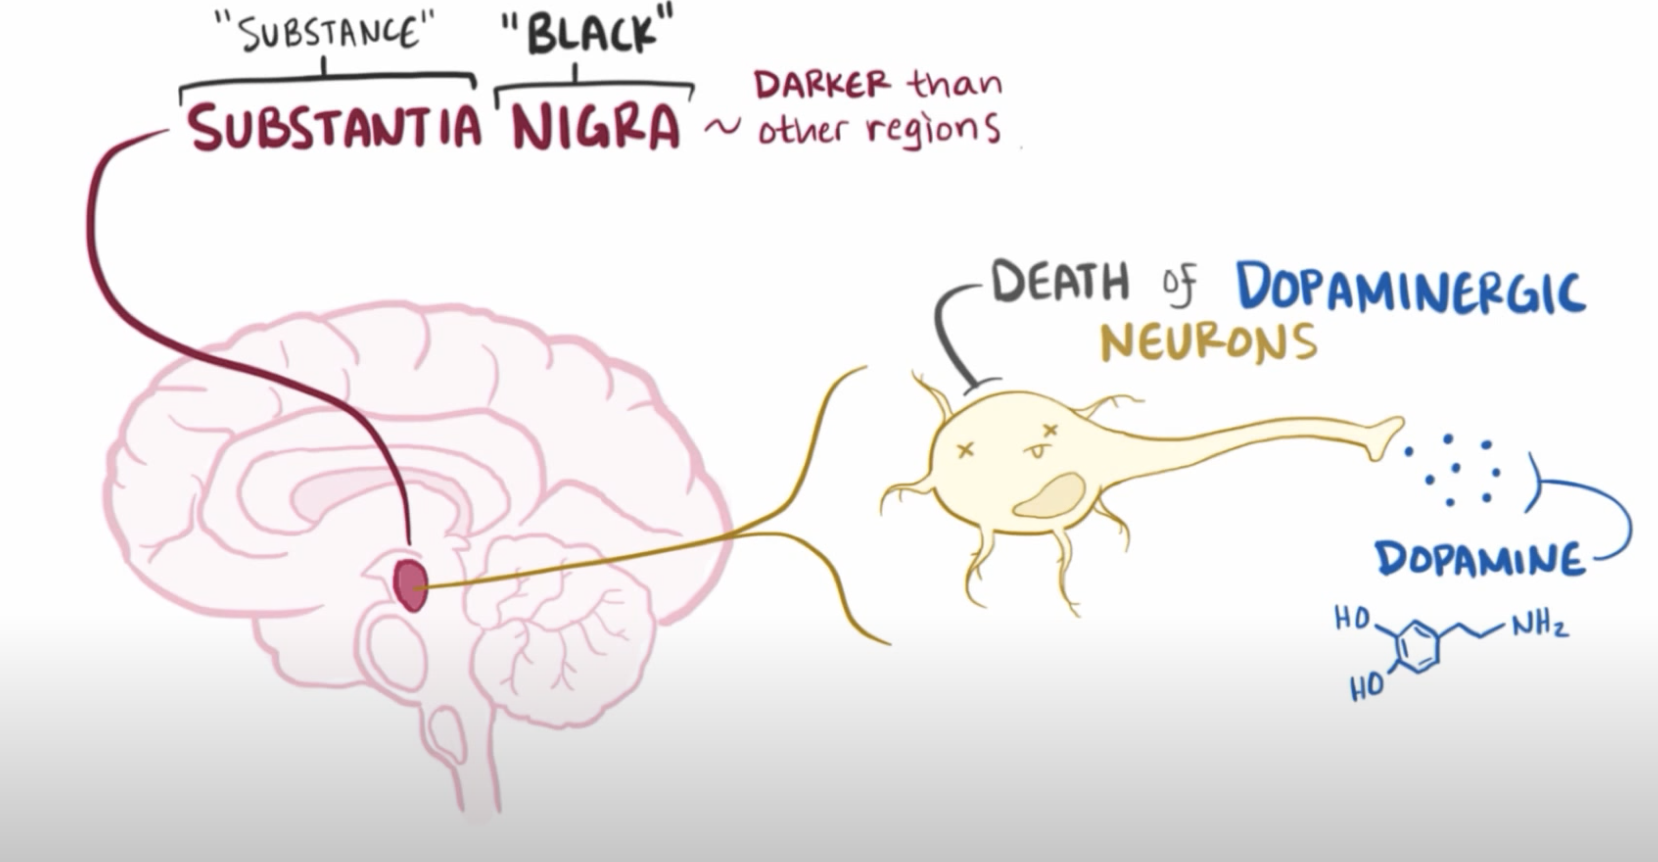 "SUBSTANCE" "BLACK"
SUBSTANTIA NIGRA ~ DARKER than
other regions
DEATH of DOPAMINERGIC
NEURONS
DOPAMINE
HO
NH₂
HO